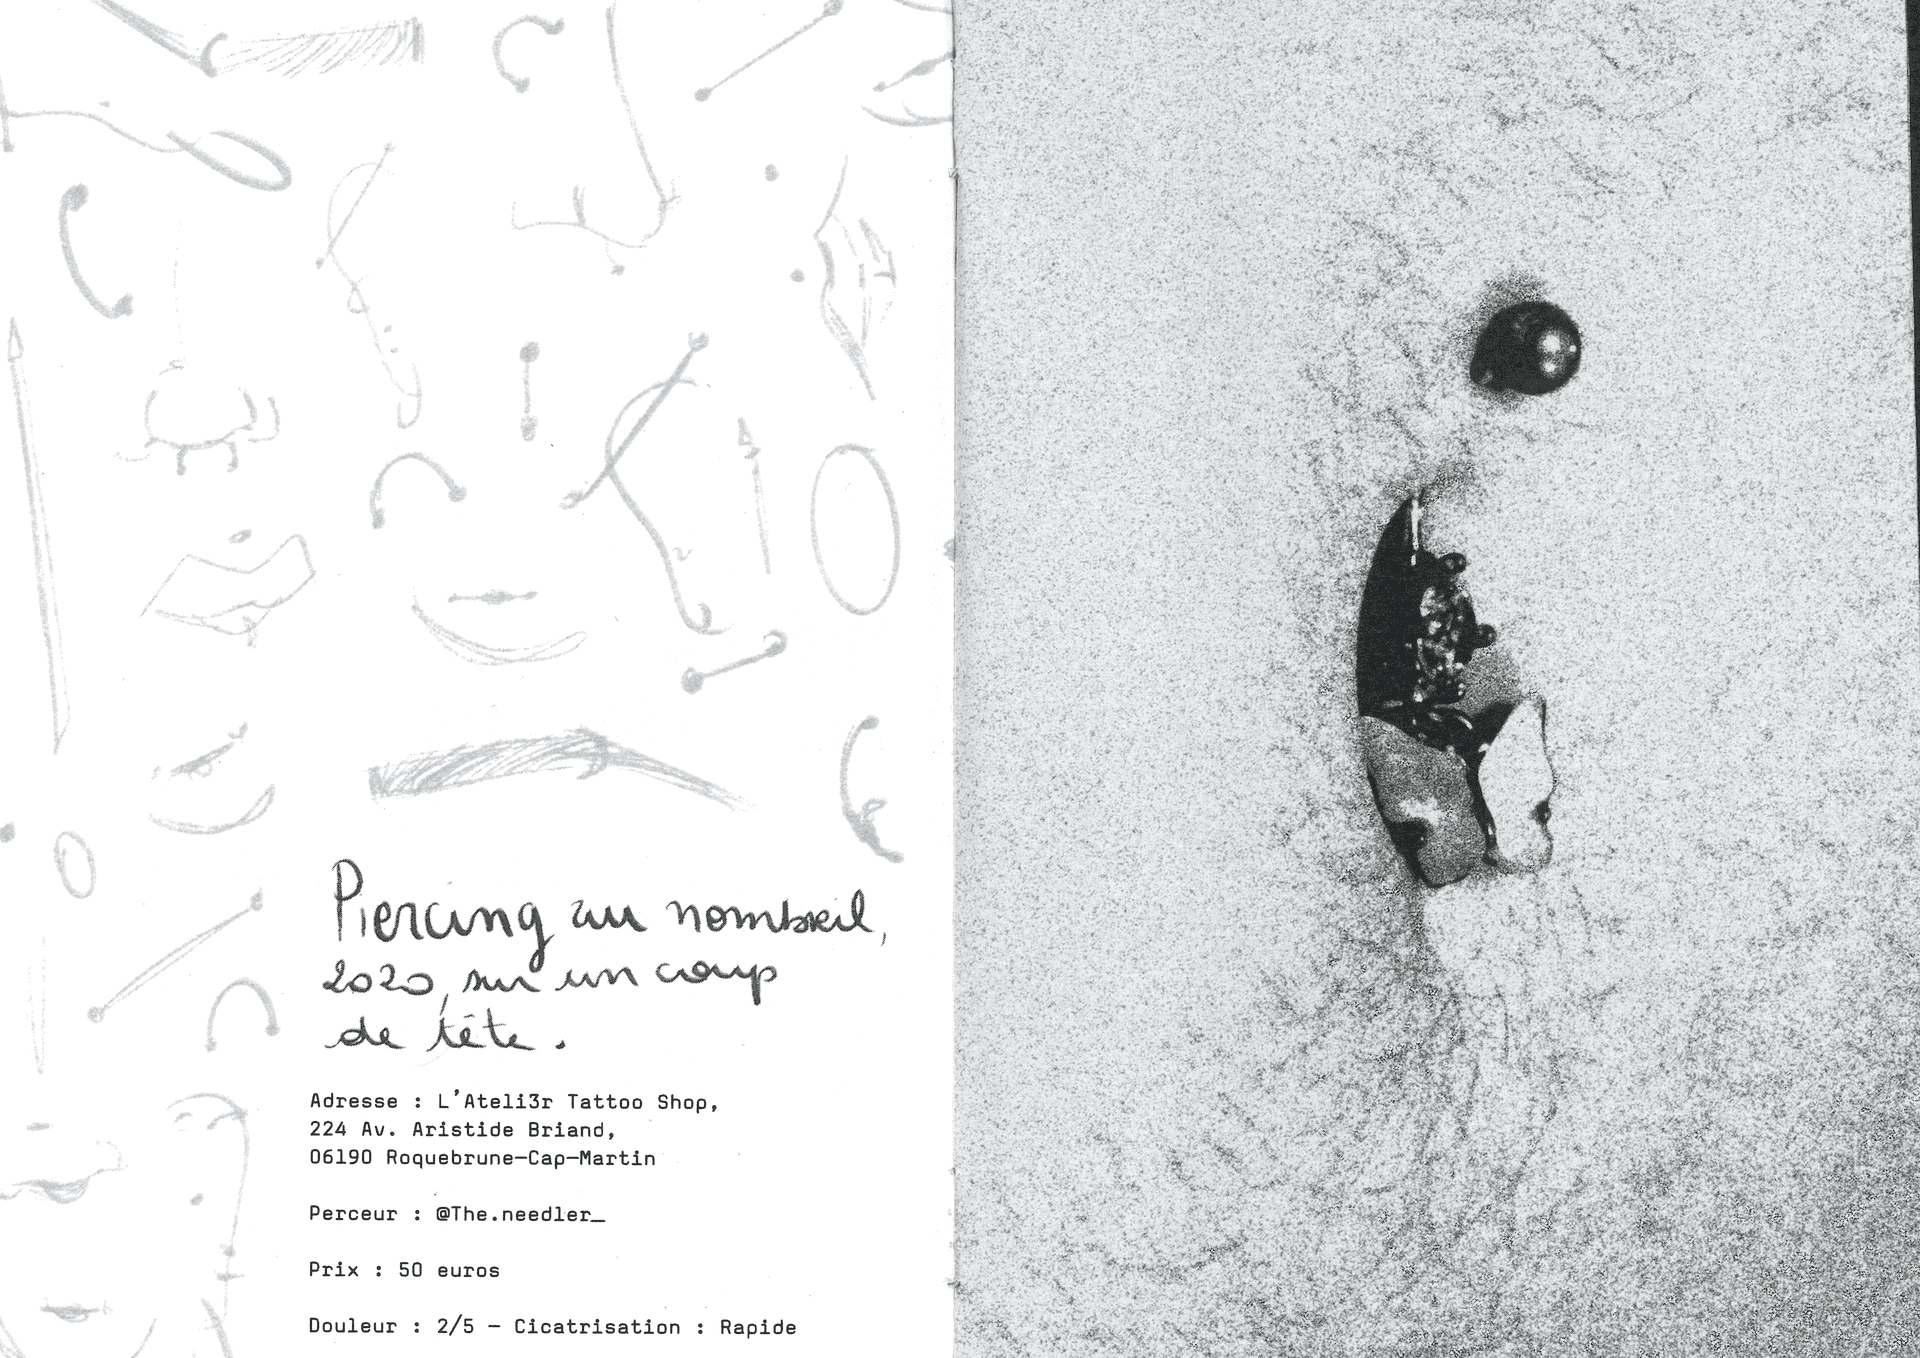 Piercing au nombril,
2020, sur un coup
de tête.
Adresse : L'Ateli3r Tattoo Shop,
224 Av. Aristide Briand,
06190 Roquebrune-Cap-Martin
Perceur : @The.needler_
Prix : 50 euros
Douleur : 2/5 - Cicatrisation : Rapide